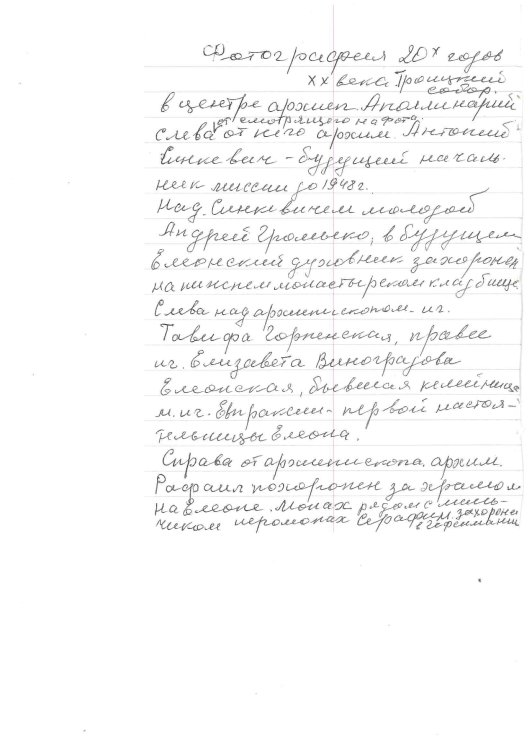 Фотография 20х годов
XX века. Троицкий
собор.
в центре архиеп. Аполлинарий
от смотрящего на фото
слева от него архим. Антоний
Синкевич - будущий началь-
ник миссии до 1948 г.
Над Синкевичем молодой
Андрей Громыко, в будущем
Елеонский духовник захоронен
на нижнем монастырском кладбище.
Слева над архиепископом - иг.
Тавифа Горпенская, правее
иг. Елизавета Виноградова
Елеонская, бывшая келейница
м. иг. Евпраксии - первой настоя-
тельницы Елеона.
Справа от архиепископа, архим.
Рафаил похоронен за храмом
на Елеоне. Монах рядом с маль-
чиком иеромонах Серафим. захоронен
в Гефсимании